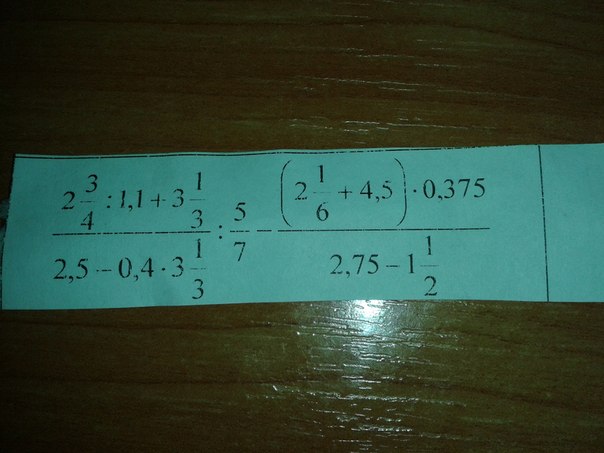 2 3/4 : 1,1 + 3 1/3
2,5 − 0,4 · 3 1/3
: 5/7 −
(2 1/6 + 4,5) · 0,375
2,75 − 1 1/2